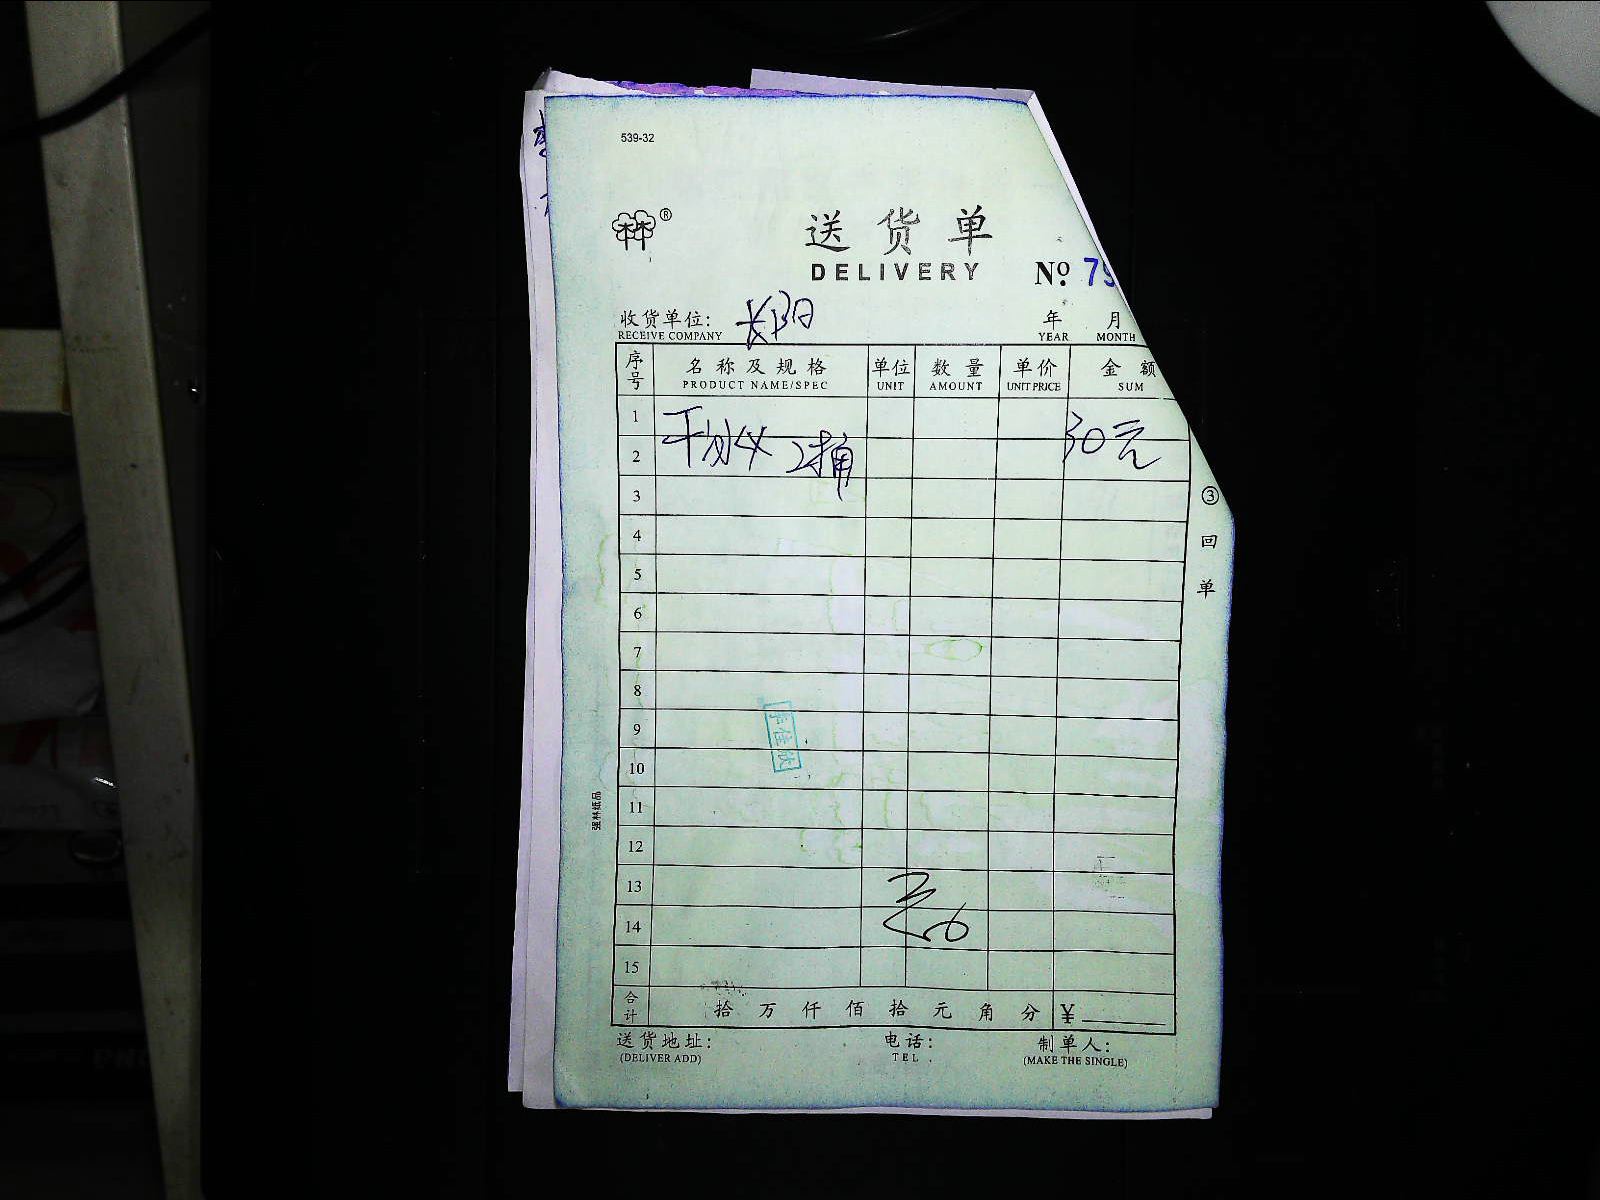 539-32
送货单
DELIVERY
№ 79
收货单位: 长阳
RECEIVE COMPANY
年 月
YEAR MONTH
序号 名称及规格 单位 数量 单价 金额
PRODUCT NAME/SPEC UNIT AMOUNT UNIT PRICE SUM
1 30元
2 2桶
3
4
5
6
7
8
9
10
11
12
13
14
15
合计 拾 万 仟 佰 拾 元 角 分 ¥
送货地址: 电话: 制单人:
(DELIVER ADD) TEL. (MAKE THE SINGLE)
③回单
强林纸品